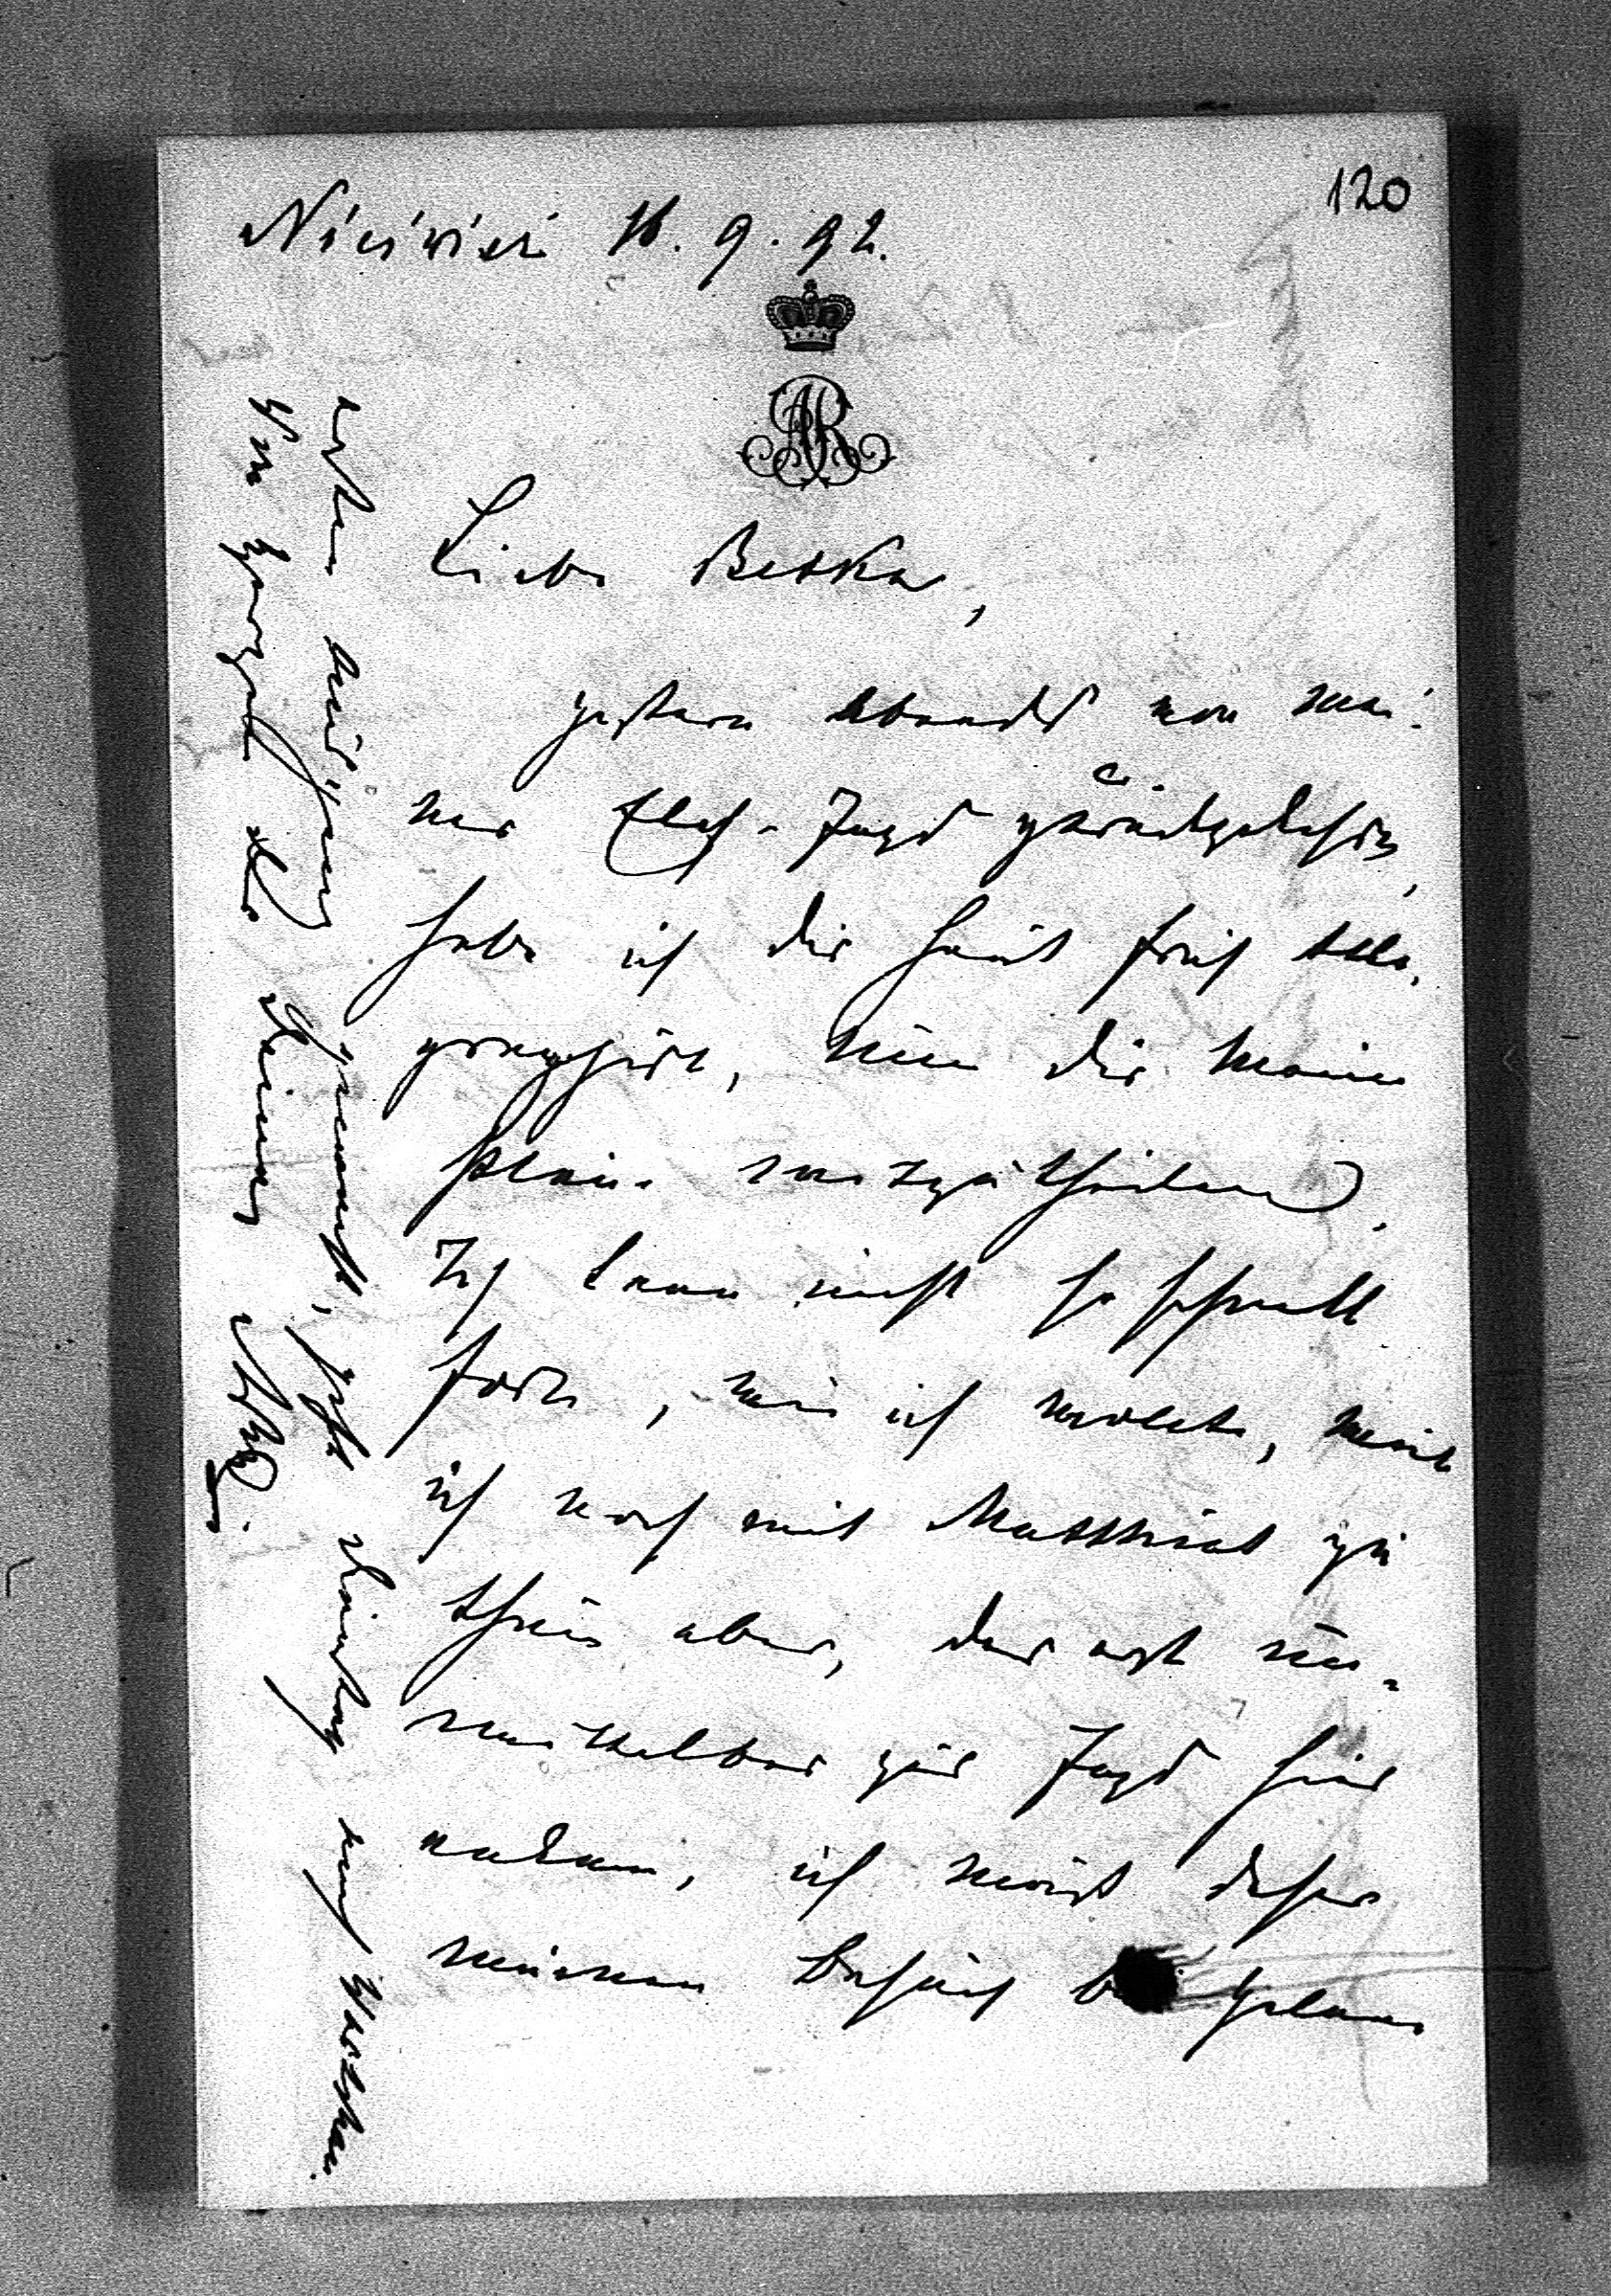 120
Nieśwież 16. 9. 92.
AR
Liebe Betka,
gestern abends von mei-
ner Elch-Jagd zurückgekehrt,
habe ich dir heut früh tele-
graphirt, um dir meine
Pläne mitzutheilen.
Ich kann nicht so schnell
fort, wie ich wollte, weil
ich noch mit Matthias zu
thun habe, der erst un-
mittelbar zur Jagd hier
ankam, ich muß daher
meinen Besuch bei
erst
gemacht, Dienstag nach Warschau.
Deiner